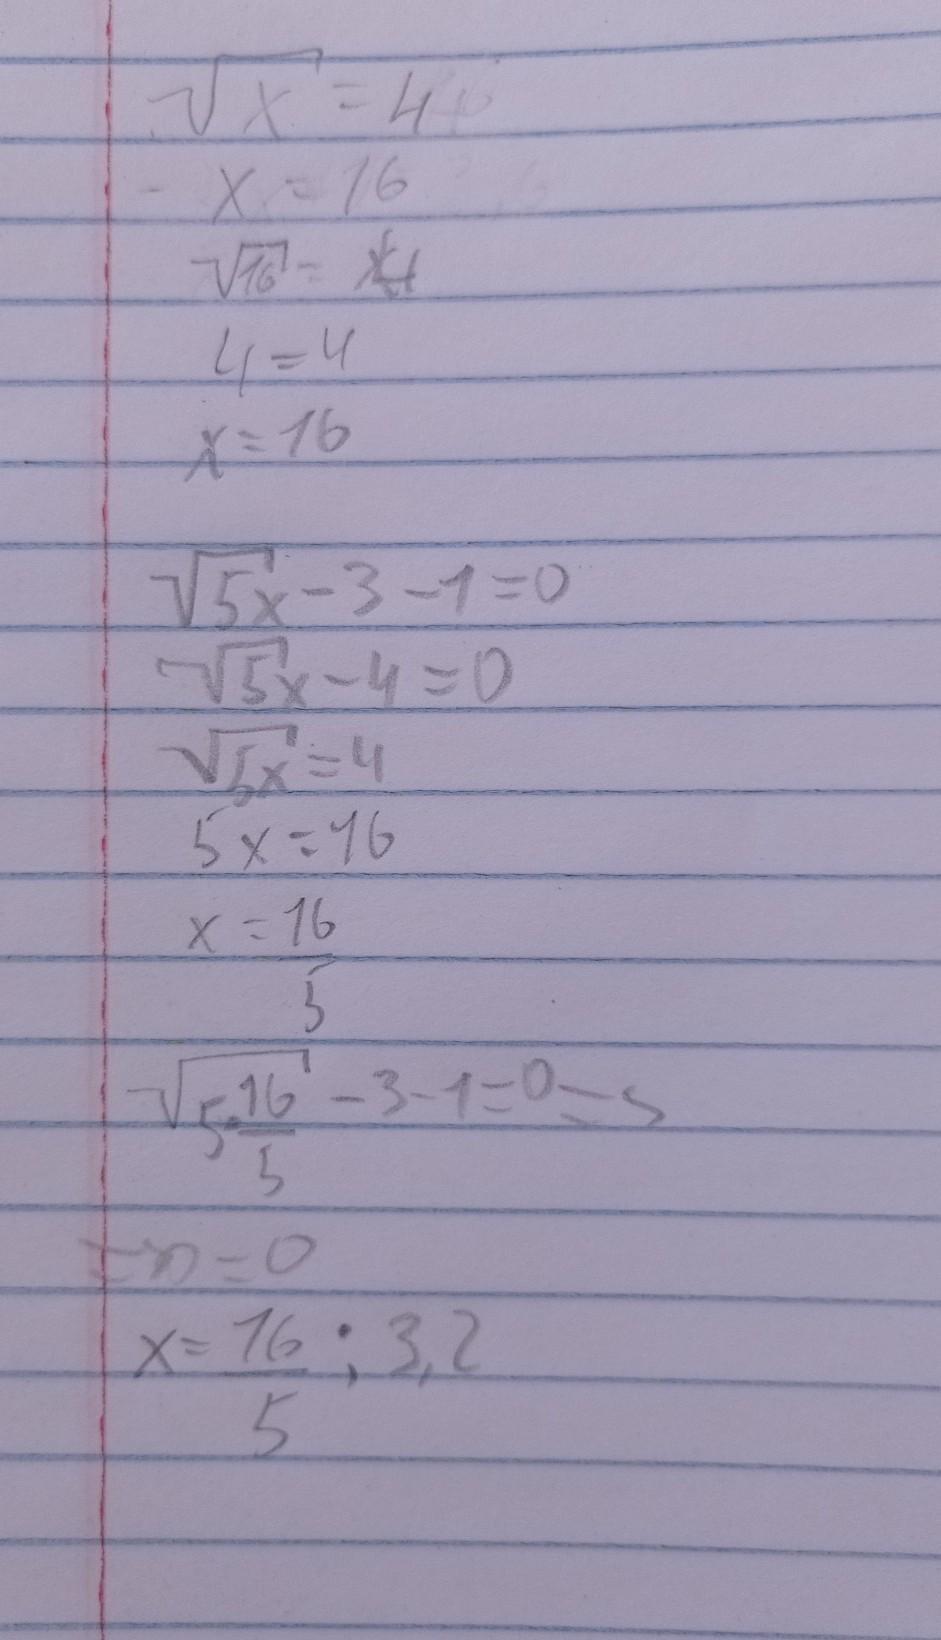 √x = 4
x = 16
√16 = 4
4 = 4
x = 16
√5x - 3 - 1 = 0
√5x - 4 = 0
√5x = 4
5x = 16
x = 16/5
√5·16/5 - 3 - 1 = 0
= 0
x = 16/5 ; 3,2